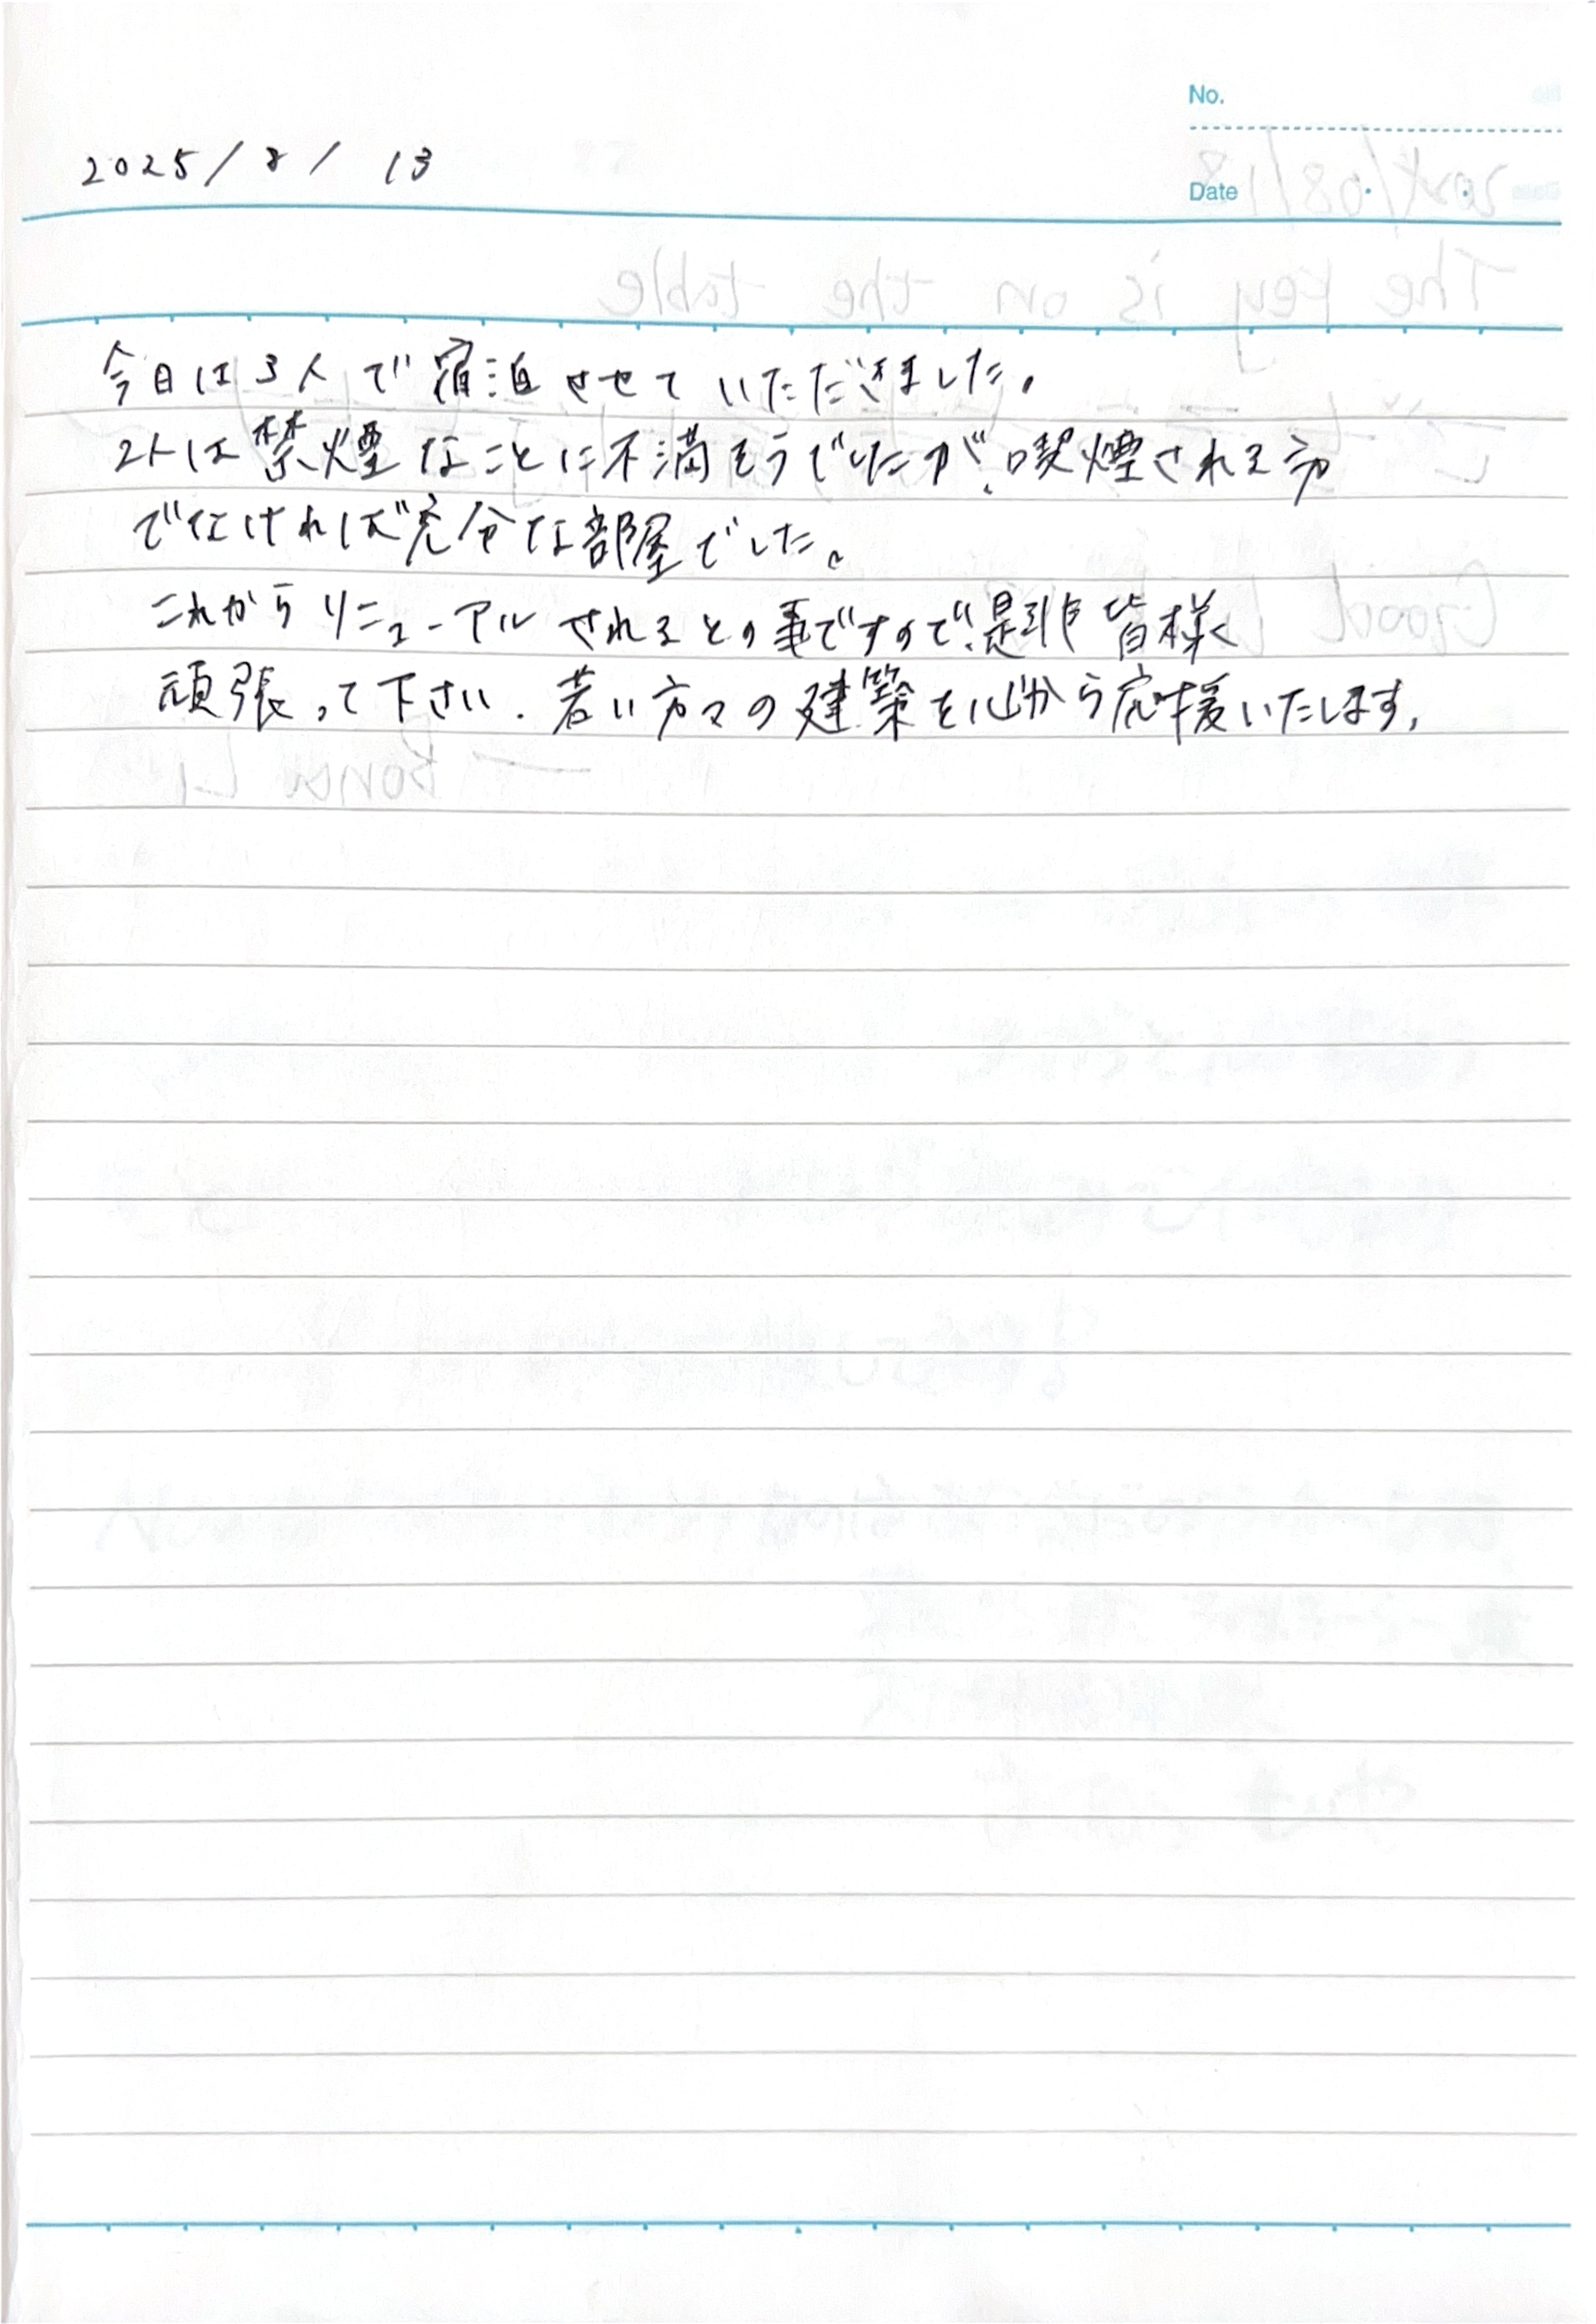 No.
2025/8/13
Date
今日は3人で宿泊させていただきました。
2人は禁煙なことに不満そうでしたが、喫煙される方
でなければ充分な部屋でした。
これからリニューアルされるとの事ですので、是非皆様
頑張って下さい。若い方々の建築を心から応援いたします。